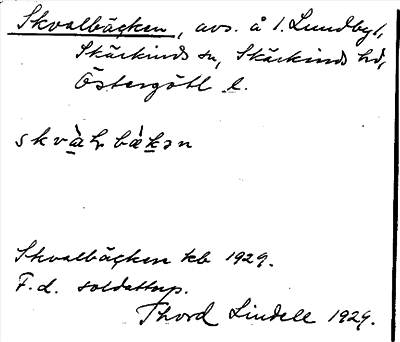 Skvalbäcken, avs. å 1. Lundby1,
Skärkinds sn, Skärkinds hd,
Östergötl l.
skvàlbä̀kən
Skvalbäcken kb 1929.
F. d. soldattorp.
Thord Lindell 1929.